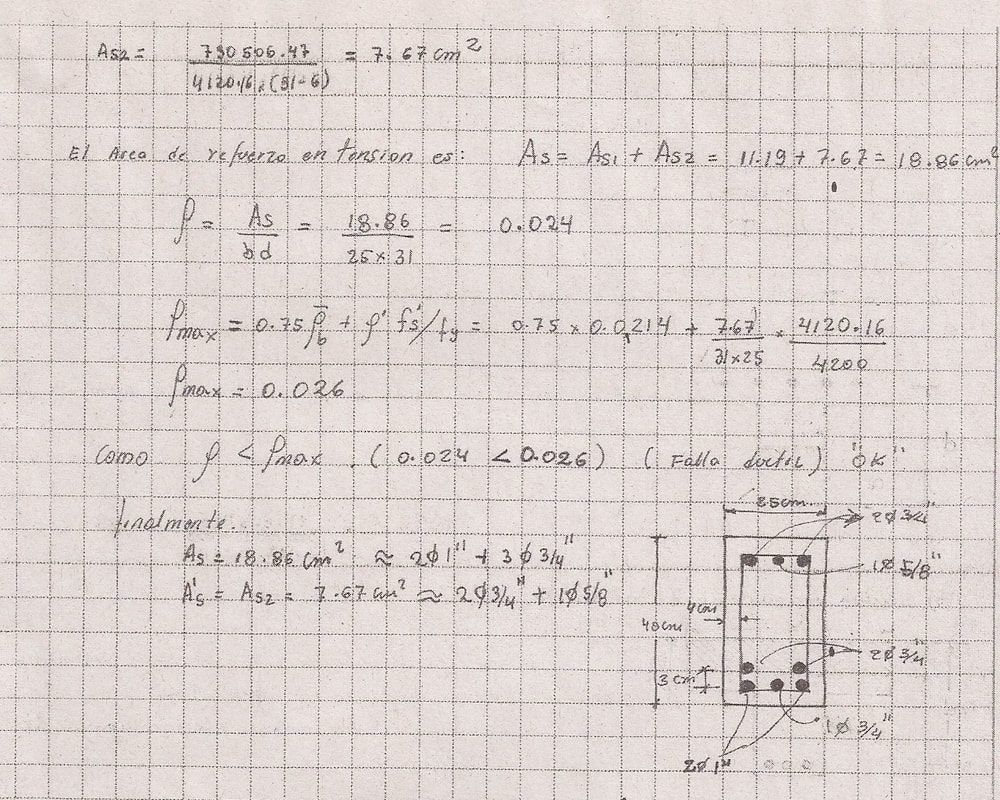 As2 = 790506.47 / 4120.16 x (31-6) = 7.67 cm²
El Area de refuerzo en tension es: As = As1 + As2 = 11.19 + 7.67 = 18.86 cm²
ρ = As / bd = 18.86 / 25 x 31 = 0.024
ρmax = 0.75 ρ̄b + ρ' fs'/fy = 0.75 x 0.0214 + 7.67 / 31x25 x 4120.16 / 4200
ρmax = 0.026
Como ρ < ρmax . (0.024 < 0.026) (Falla ductil) "OK"
finalmente.
As = 18.86 cm² ≈ 2ϕ1" + 3ϕ3/4"
A's = As2 = 7.67 cm² ≈ 2ϕ3/4" + 1ϕ5/8"
25cm
2ϕ3/4"
1ϕ5/8"
4cm
40cm
2ϕ3/4"
3cm
1ϕ3/4"
2ϕ1"